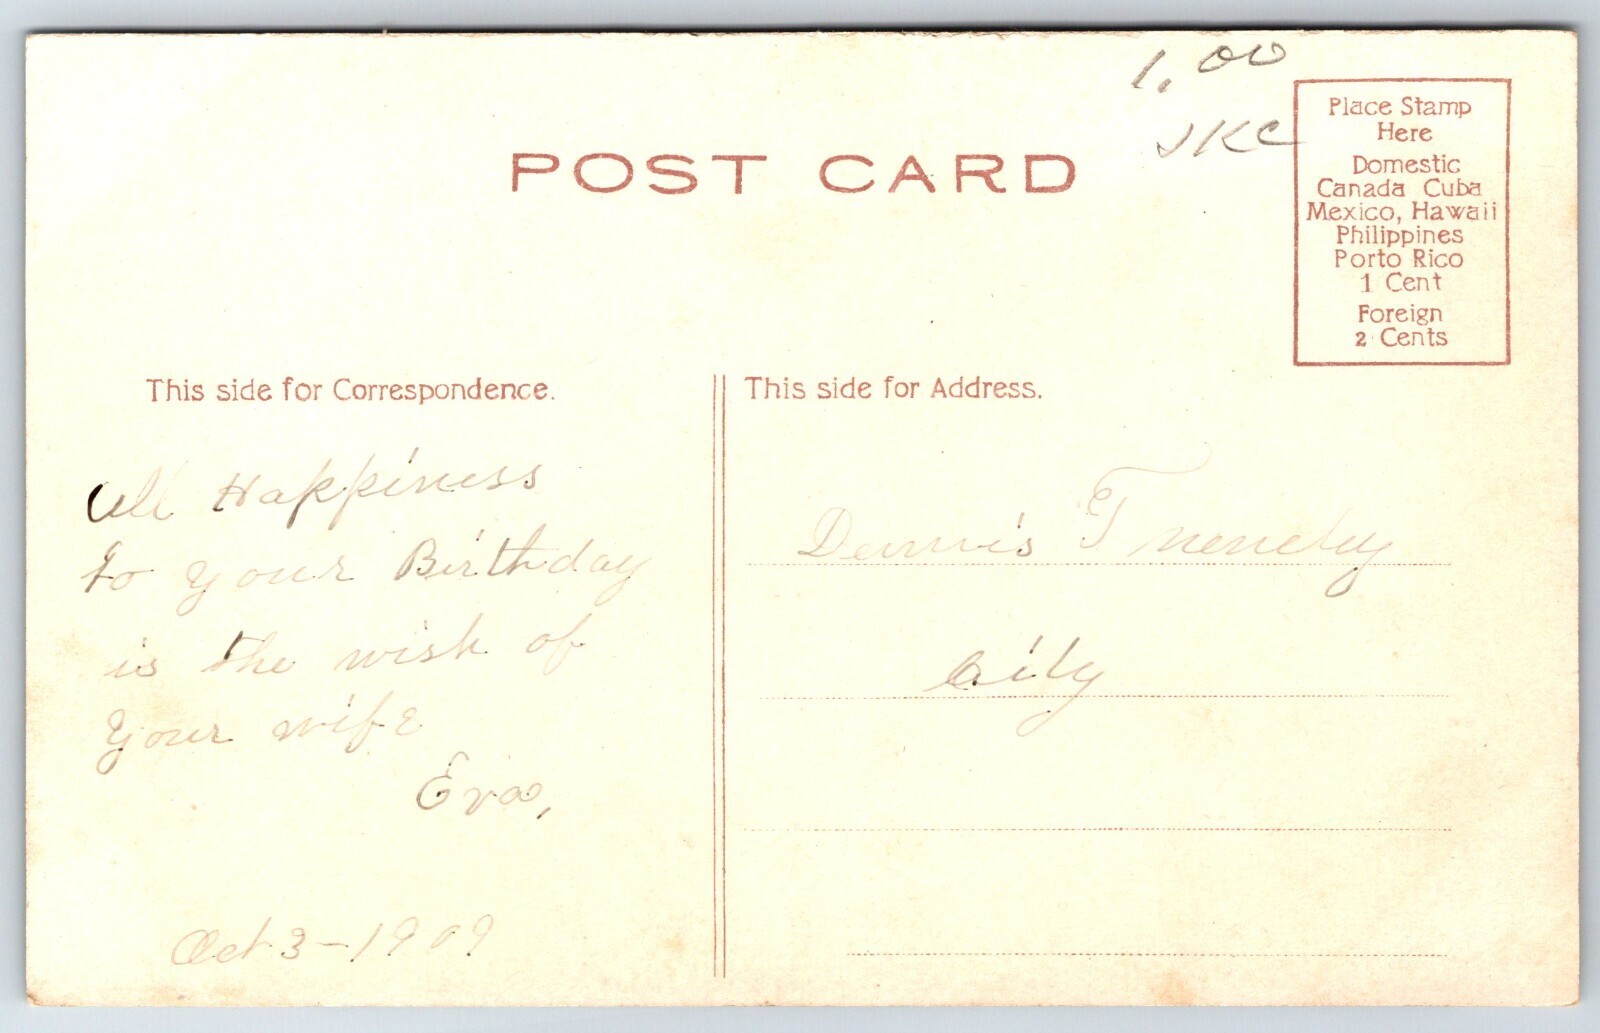 1.00
JKC
POST CARD
Place Stamp
Here
Domestic
Canada Cuba
Mexico, Hawaii
Philippines
Porto Rico
1 Cent
Foreign
2 Cents
This side for Correspondence.
All Happiness
to your Birthday
is the wish of
your wife
Eva,
Oct 3-1909
This side for Address.
Dennis
City